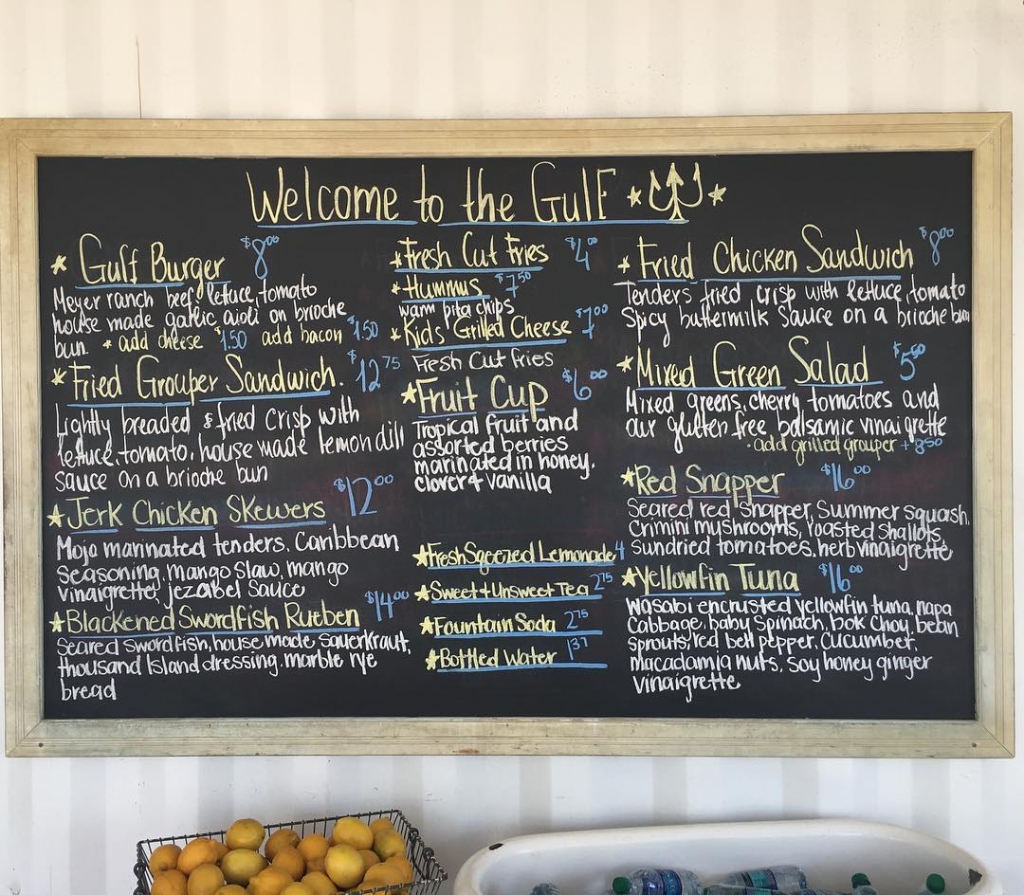 Welcome to the Gulf
Gulf Burger $8.00
Meyer ranch beef, lettuce, tomato
house made garlic aioli on brioche
bun * add cheese $1.50 add bacon $1.50
Fried Grouper Sandwich. $12.75
Lightly breaded & fried crisp with
lettuce, tomato, house made lemon dill
sauce on a brioche bun
Jerk Chicken Skewers $12.00
Mojo marinated tenders, Caribbean
seasoning, mango slaw, mango
vinaigrette, jezabel sauce
Blackened Swordfish Rueben $14.00
Seared swordfish, house made sauerkraut,
thousand island dressing, marble rye
bread
Fresh Cut Fries $4.00
Hummus $7.50
warm pita chips
Kid's Grilled Cheese $7.00
Fresh Cut fries
Fruit Cup $6.00
Tropical fruit and
assorted berries
marinated in honey,
clover & vanilla
Fresh Sqeezed Lemonade 4
Sweet & Unsweet Tea 2.75
Fountain Soda 2.75
Bottled Water 1.37
Fried Chicken Sandwich $8.00
Tenders fried crisp with lettuce, tomato
Spicy buttermilk sauce on a brioche bun
Mixed Green Salad $5.50
Mixed greens, cherry tomatoes and
our gluten free balsamic vinaigrette
· add grilled grouper + 8.50
Red Snapper $16.00
Seared red snapper, Summer squash,
Crimini mushrooms, roasted shallots,
sundried tomatoes, herb vinaigrette
Yellowfin Tuna $16.00
Wasabi encrusted yellowfin tuna, napa
Cabbage, baby spinach, bok choy, bean
sprouts, red bell pepper, cucumber,
macadamia nuts, soy honey ginger
vinaigrette